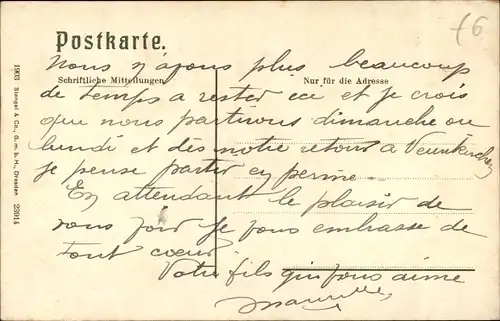 Postkarte.
Nous n'avons plus beaucoup
Schriftliche Mitteilungen
Nur für die Adresse
de temps a rester ici et je crois
que nous partirons dimanche ou
lundi et dès notre retour a
je pense partir en perme.
En attendant le plaisir de
vous voir je vous embrasse de
tout cœur
Votre fils qui vous aime
1903 Stengel & Co., G. m. b. H., Dresden 23914